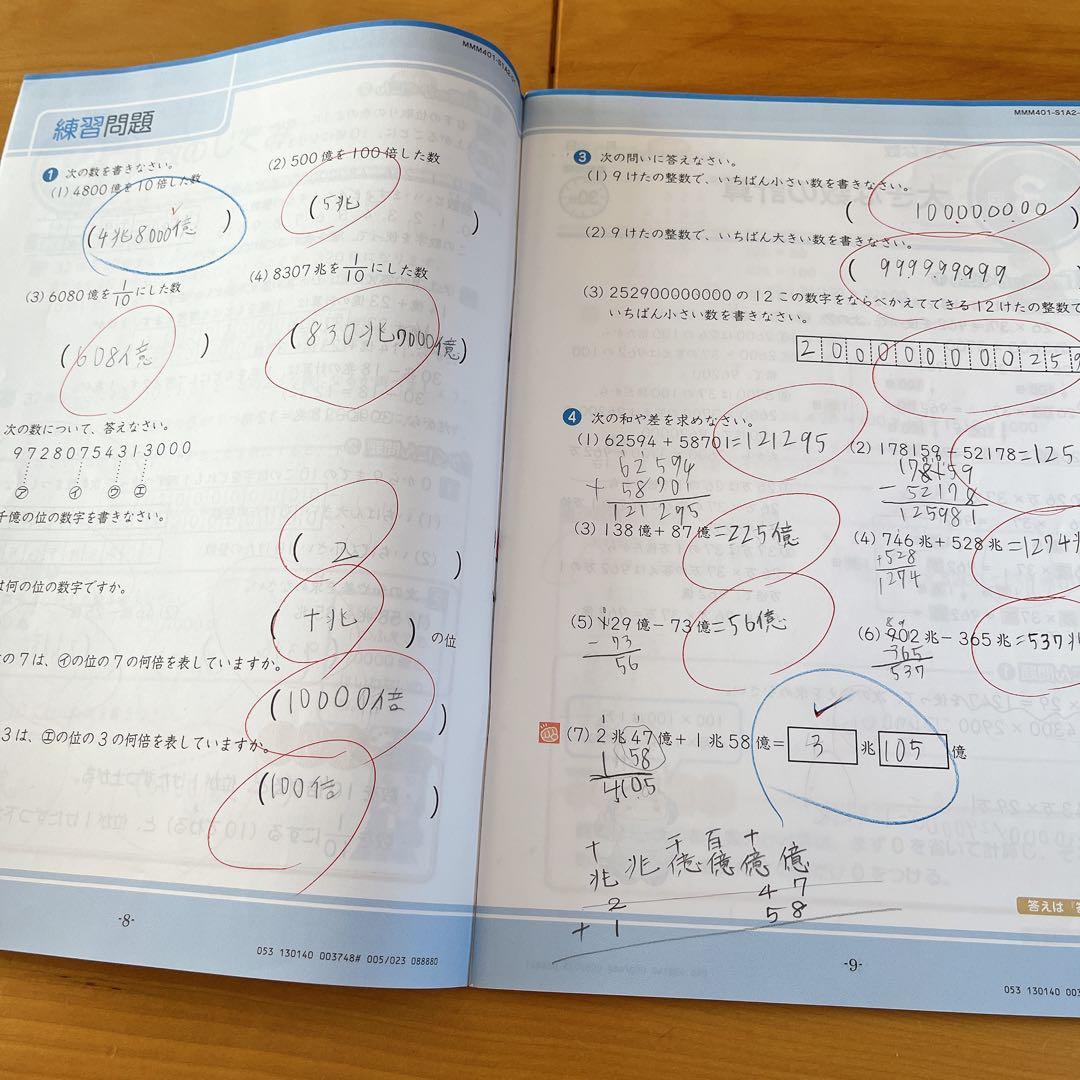 MMM401-S1A2-
練習問題
1 次の数を書きなさい。
(1) 4800億を10倍した数
(4兆8000億)
(2) 500億を100倍した数
(5兆)
(3) 6080億を1/10にした数
(608億)
(4) 8307兆を1/10にした数
(830兆7000億)
次の数について、答えなさい。
9728075431 3000
㋐ ㋑ ㋒ ㋓
千億の位の数字を書きなさい。
(2)
は何の位の数字ですか。
(十兆)の位
の7は、㋑の位の7の何倍を表していますか。
(10000倍)
3は、㋓の位の3の何倍を表していますか。
(100倍)
-8-
053 130140 003748# 005/023 088880
MMM401-S1A2-
3 次の問いに答えなさい。
(1) 9けたの整数で、いちばん小さい数を書きなさい。
(100000000)
(2) 9けたの整数で、いちばん大きい数を書きなさい。
(999999999)
(3) 252900000000の12この数字をならべかえてできる12けたの整数で
いちばん小さい数を書きなさい。
2 0 0 0 0 0 0 0 0 2 5 9
4 次の和や差を求めなさい。
(1) 62594+58701=121295
62594
+ 58701
121295
(2) 178159-52178=125
178159
- 52178
125981
(3) 138億+87億=225億
(4) 746兆+528兆=1274兆
+528
1274
(5) 129億-73億=56億
- 73
56
(6) 902兆-365兆=537兆
365
537
(7) 2兆47億+1兆58億=3兆105億
1 58
4105
十兆 兆 千億 百億 十億 億
2 4 7
+ 1 5 8
答えは
-9-
053 130140 003